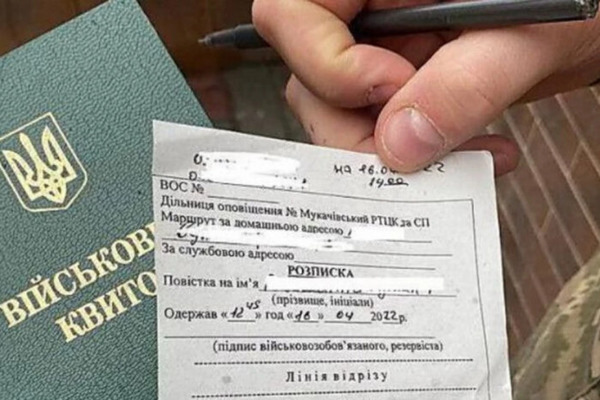 ВІЙСЬКОВ
КВИТО
НА 16.0 22
14.00
ВОС №
Дільниця оповіщення № Мукачівський РТЦК та СП
Маршрут за домашньою адресою
За службовою адресою
РОЗПИСКА
Повістка на ім'я
(прізвище, ініціали)
Одержав «12 45» год «16» 04 2022р.
(підпис військовозобов'язаного, резервіста)
Лінія відрізу